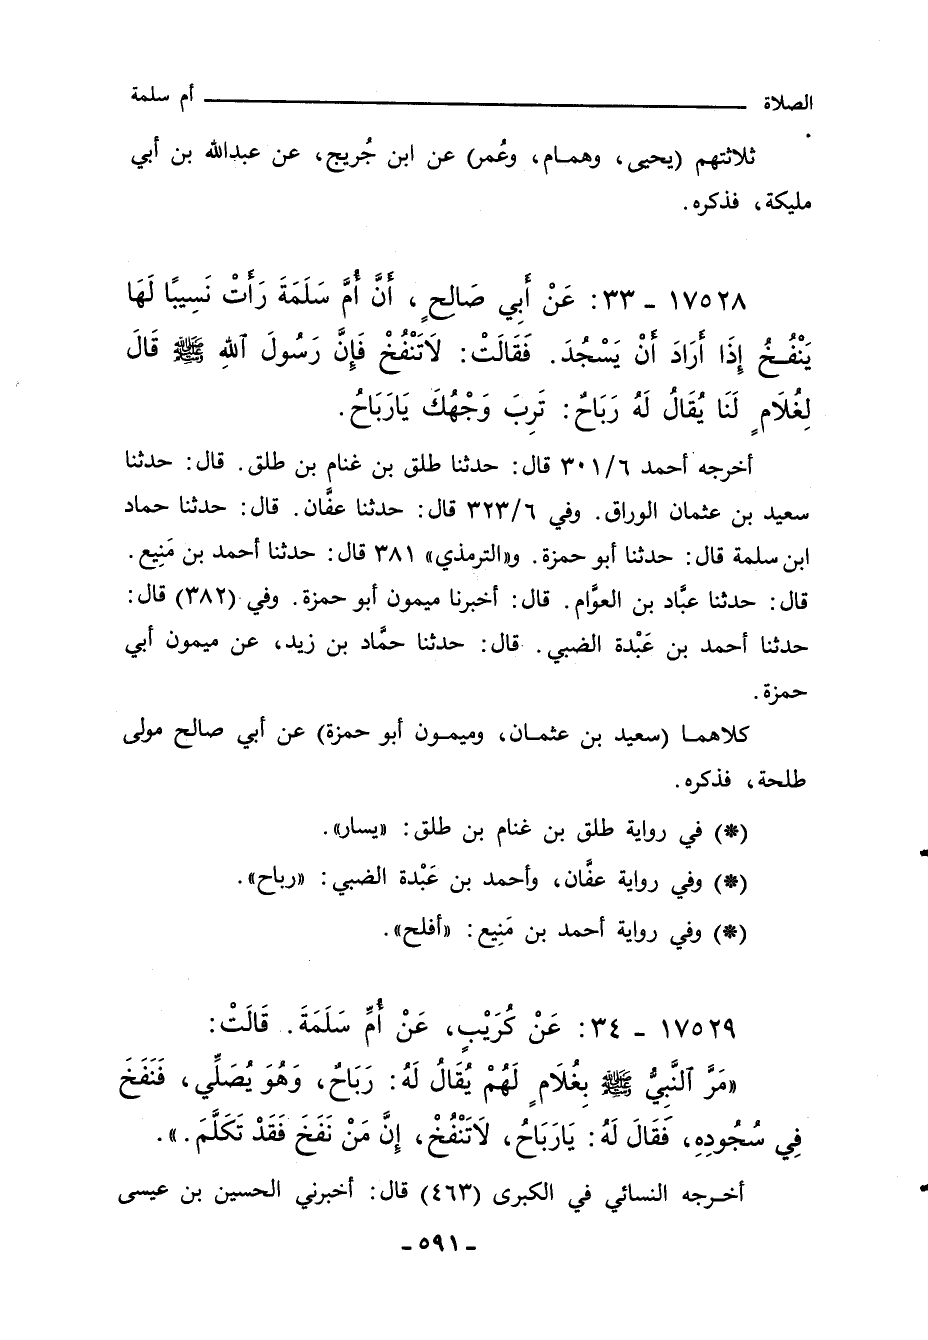 الصلاة أم سلمة
ثلاثتهم (يحيى، وهمام، وعُمر) عن ابن جُريج، عن عبدالله بن أبي
مليكة، فذكره.
١٧٥٢٨ - ٣٣: عَنْ أَبِي صَالِحٍ، أَنَّ أُمَّ سَلَمَةَ رَأَتْ نَسِيبًا لَهَا
يَنْفُخُ إِذَا أَرَادَ أَنْ يَسْجُدَ. فَقَالَتْ: لَاتَنْفُخْ فَإِنَّ رَسُولَ ٱللهِ ﷺ قَالَ
لِغُلَامٍ لَنَا يُقَالُ لَهُ رَبَاحٌ: تَرِبَ وَجْهُكَ يَارَبَاحُ.
أخرجه أحمد ٣٠١/٦ قال: حدثنا طلق بن غنام بن طلق. قال: حدثنا
سعيد بن عثمان الوراق. وفي ٣٢٣/٦ قال: حدثنا عفَّان. قال: حدثنا حماد
ابن سلمة قال: حدثنا أبو حمزة. و«الترمذي» ٣٨١ قال: حدثنا أحمد بن مَنِيع.
قال: حدثنا عبَّاد بن العوَّام. قال: أخبرنا ميمون أبو حمزة. وفي (٣٨٢) قال:
حدثنا أحمد بن عَبْدة الضبي. قال: حدثنا حمَّاد بن زيد، عن ميمون أبي
حمزة.
كلاهما (سعيد بن عثمان، وميمون أبو حمزة) عن أبي صالح مولى
طلحة، فذكره.
(*) في رواية طلق بن غنام بن طلق: «يسار».
(*) وفي رواية عفَّان، وأحمد بن عَبْدة الضبي: «رباح».
(*) وفي رواية أحمد بن مَنِيع: «أفلح».
١٧٥٢٩ - ٣٤: عَنْ كُرَيْبٍ، عَنْ أُمِّ سَلَمَةَ. قَالَتْ:
«مَرَّ ٱلنَّبِيُّ ﷺ بِغُلَامٍ لَهُمْ يُقَالُ لَهُ: رَبَاحُ، وَهُوَ يُصَلِّي، فَنَفَخَ
فِي سُجُودِهِ، فَقَالَ لَهُ: يَارَبَاحُ، لَاتَنْفُخْ، إِنَّ مَنْ نَفَخَ فَقَدْ تَكَلَّمَ.».
أخرجه النسائي في الكبرى (٤٦٣) قال: أخبرني الحسين بن عيسى
- ٥٩١ -